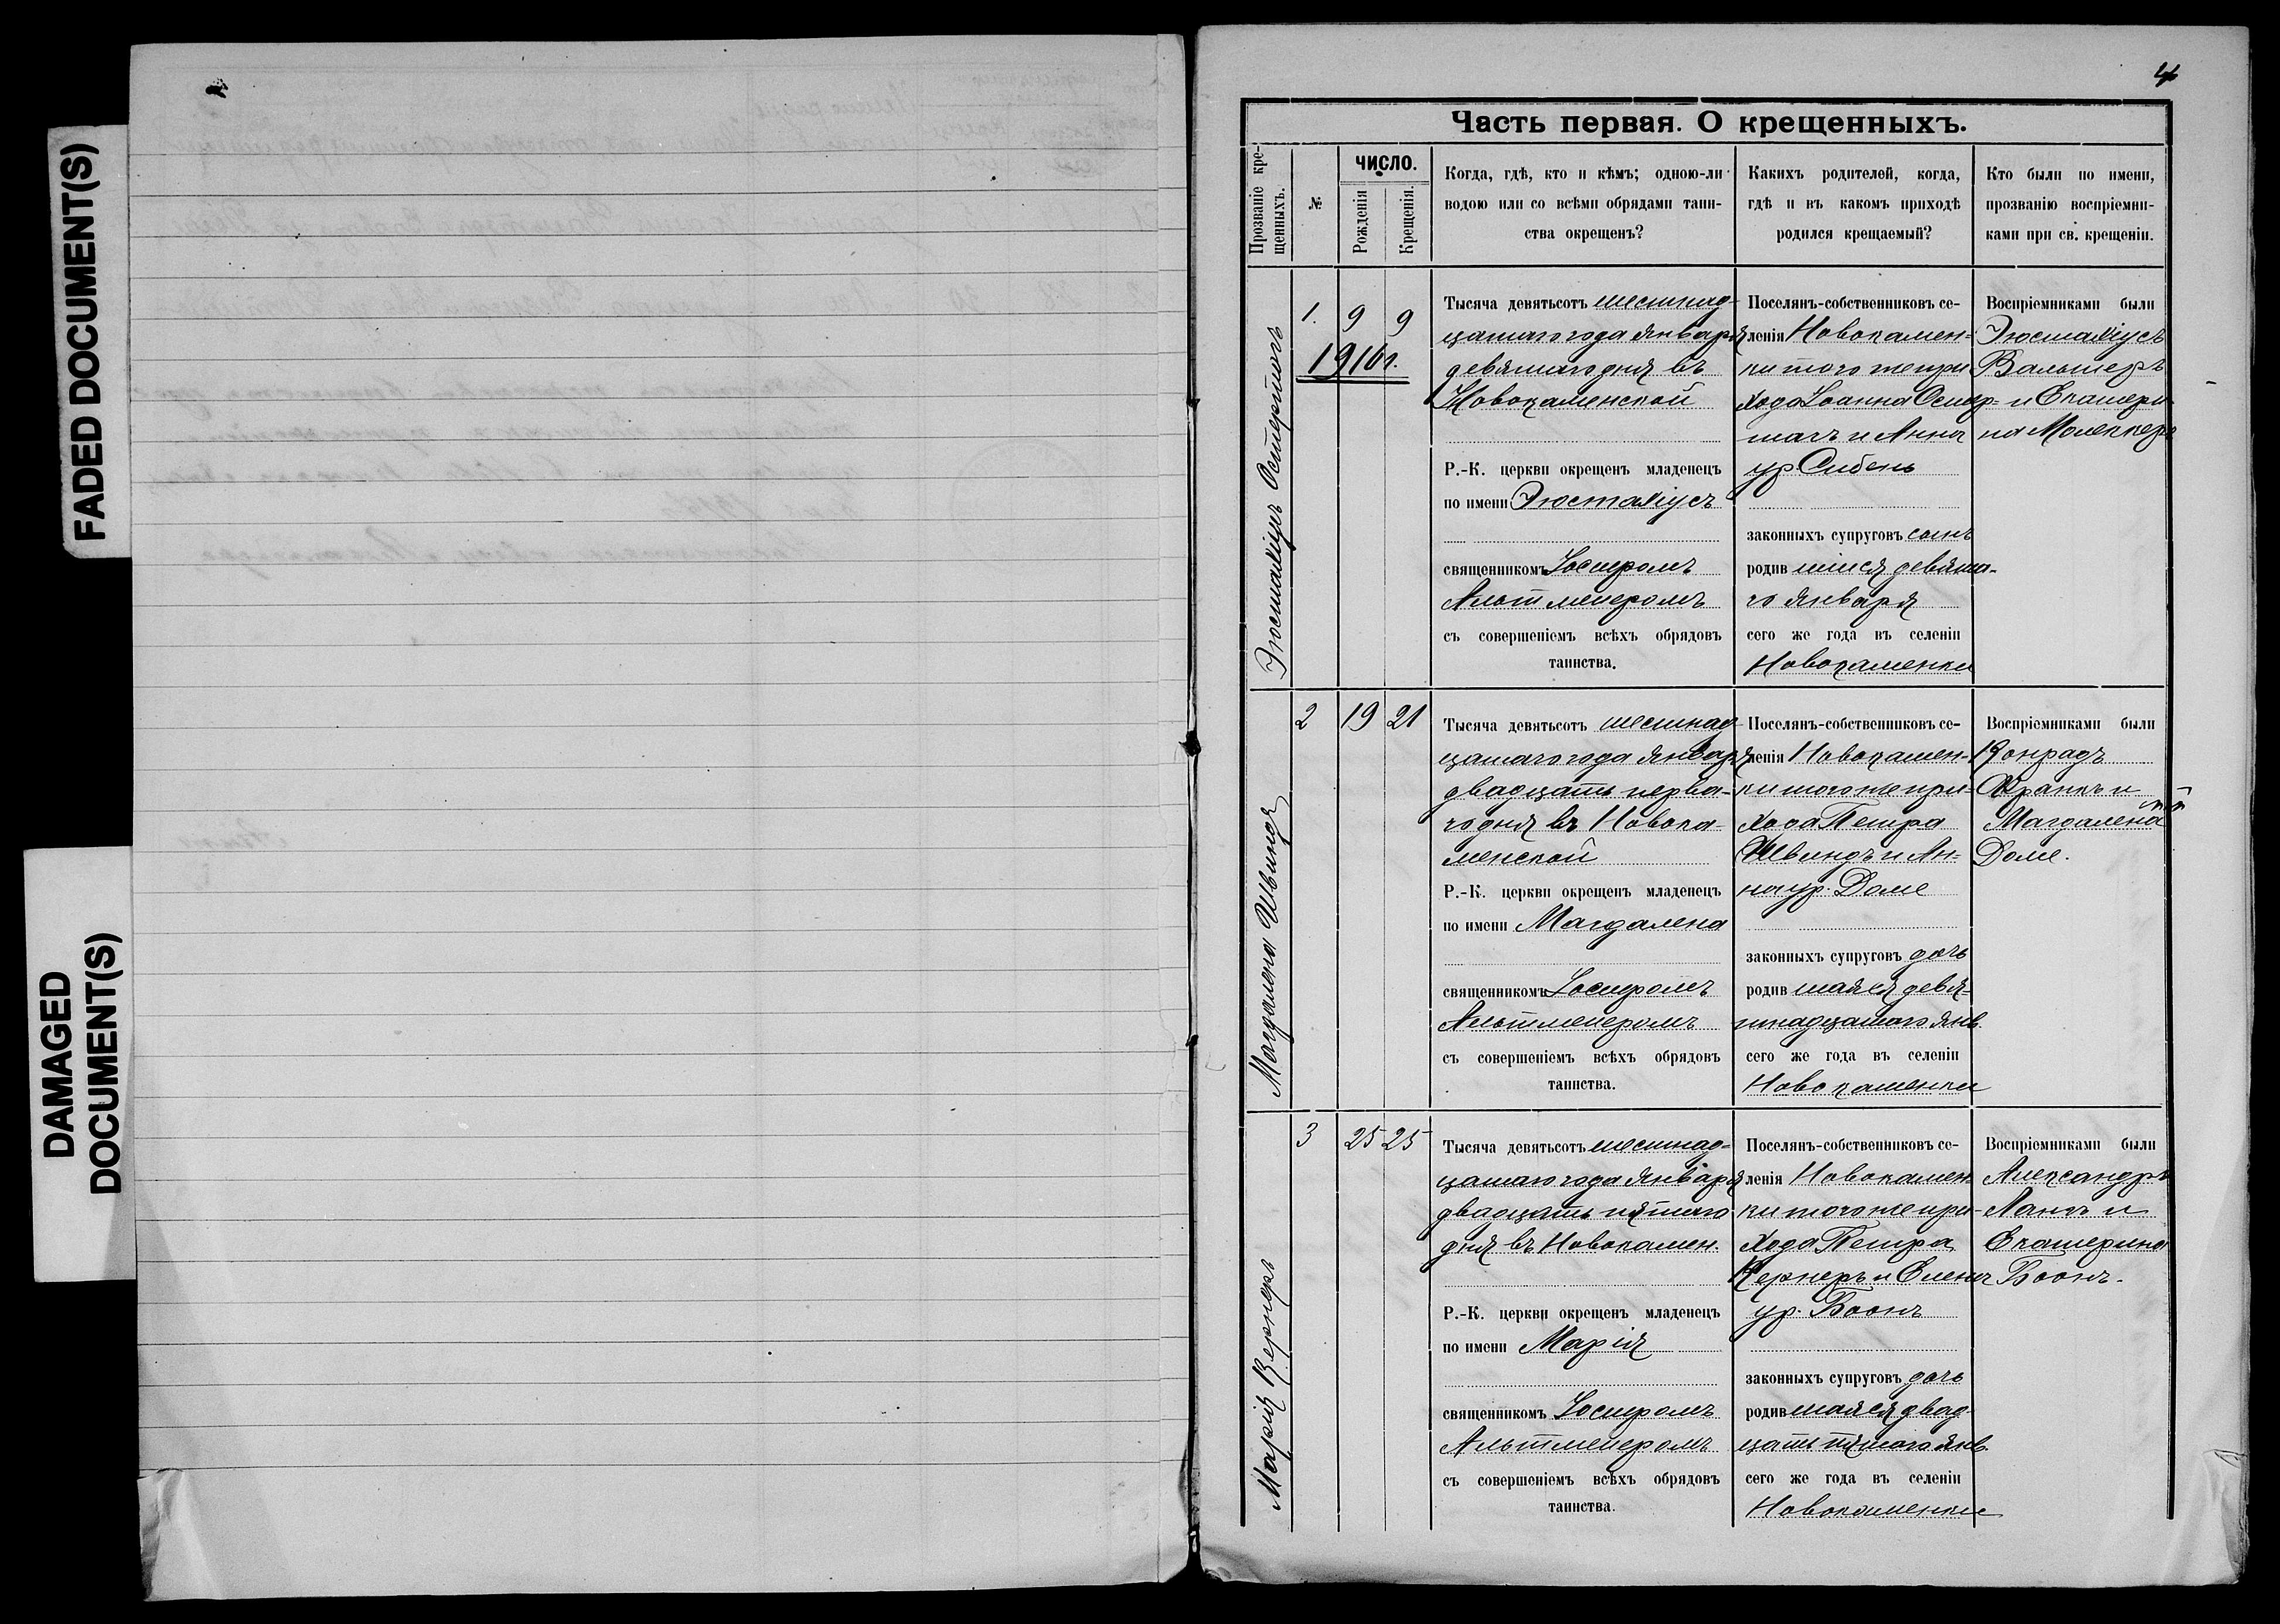 FADED DOCUMENT(S)
DAMAGED
DOCUMENT(S)
4
Часть первая. О крещенныхъ.
Прозваніе кре-
щенныхъ.
№
ЧИСЛО.
Рожденія
Крещенія.
Когда, гдѣ, кто и кѣмъ; одною-ли
водою или со всѣми обрядами таин-
ства окрещенъ?
Какихъ родителей, когда,
гдѣ и въ какомъ приходѣ
родился крещаемый?
Кто были по имени,
прозванію воспріемни-
ками при св. крещеніи.
Эюстахіусъ Остертагъ
1.
9
9
1916 г.
Тысяча девятьсотъ шестнад-
цатаго года января
девятаго дня въ
Новокаменской
Р.-К. церкви окрещенъ младенецъ
по имени Эюстахіусъ
священникомъ Іосифомъ
Альтмейеромъ
съ совершеніемъ всѣхъ обрядовъ
таинства.
Поселянъ-собственниковъ се-
ленія Новокамен-
ки того же при
хода Іоанна Остер-
тагъ и Анна
ур. Сибенъ
законныхъ супруговъ сынъ
родив шійся девята-
го января
сего же года въ селеніи
Новокаменки
Воспріемниками были
Эюстахіусъ
Вальтеръ
и Екатери-
на
Магдалена Швиндъ
2
19
21
Тысяча девятьсотъ шестнад-
цатаго года января
двадцать перва-
го дня въ Новока-
менской
Р.-К. церкви окрещенъ младенецъ
по имени Магдалена
священникомъ Іосифомъ
Альтмейеромъ
съ совершеніемъ всѣхъ обрядовъ
таинства.
Поселянъ-собственниковъ се-
ленія Новокамен-
ки того же при-
хода Петра
Швиндъ и Ан-
на ур. Доме
законныхъ супруговъ дочь
родив шаяся девя-
тнадцатаго янв.
сего же года въ селеніи
Новокаменки
Воспріемниками были
Конрадъ
Франкъ и
Магдалена
Доме.
Марія Кернеръ
3
25
25
Тысяча девятьсотъ шестнад-
цатаго года января
двадцать пятаго
дня въ Новокамен.
Р.-К. церкви окрещенъ младенецъ
по имени Марія
священникомъ Іосифомъ
Альтмейеромъ
съ совершеніемъ всѣхъ обрядовъ
таинства.
Поселянъ-собственниковъ се-
ленія Новокамен
ки того же при-
хода Петра
Кернеръ и Елена
ур. Боонъ
законныхъ супруговъ дочь
родив шаяся двад-
цать пятаго янв.
сего же года въ селеніи
Новокаменки
Воспріемниками были
Александръ
Лангъ и
Екатерина
Боонъ.